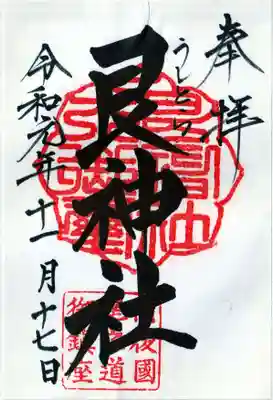 奉拝
うしとら
艮神社
令和元年十一月十七日
備後國
道
御鎮座